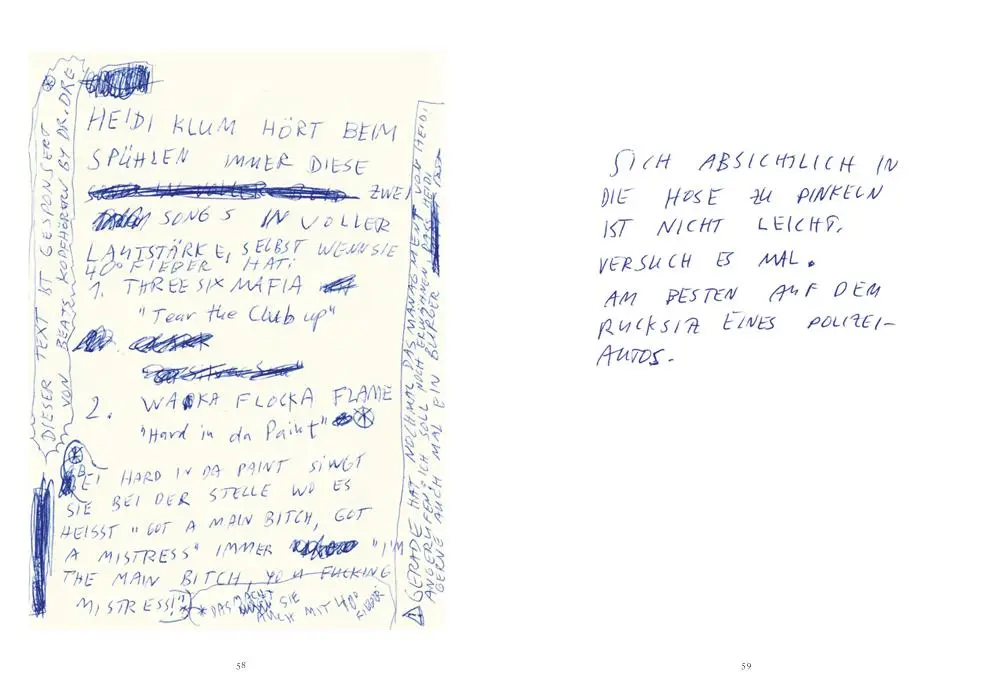 HEIDI KLUM HÖRT BEIM
SPÜHLEN IMMER DIESE
ZWEI
SONGS IN VOLLER
LAUTSTÄRKE, SELBST WENN SIE
40° FIEBER HAT:
1. THREE SIX MAFIA
"Tear the Club up"
2. WAKA FLOCKA FLAME
"Hard in da Paint" *
* BEI HARD IN DA PAINT SINGT
SIE BEI DER STELLE WO ES
HEISST "GOT A MAIN BITCH, GOT
A MISTRESS" IMMER "I'M
THE MAIN BITCH, YOU FUCKING
MISTRESS!"*
* DAS MACHT
SIE
AUCH MIT 40°
FIEBER
DIESER TEXT IST GESPONSERT
VON BEATS KOPFHÖRERN BY DR. DRE
GERADE HAT NOCHMAL DAS MANAGMENT VON HEIDI
ANGERUFEN, ICH SOLL NOCH ERWÄHNEN, DASS HEIDI
GERNE AUCH MAL EIN BURGER
58
SICH ABSICHTLICH IN
DIE HOSE ZU PINKELN
IST NICHT LEICHT.
VERSUCH ES MAL.
AM BESTEN AUF DEM
RÜCKSITZ EINES POLIZEI-
AUTOS.
59